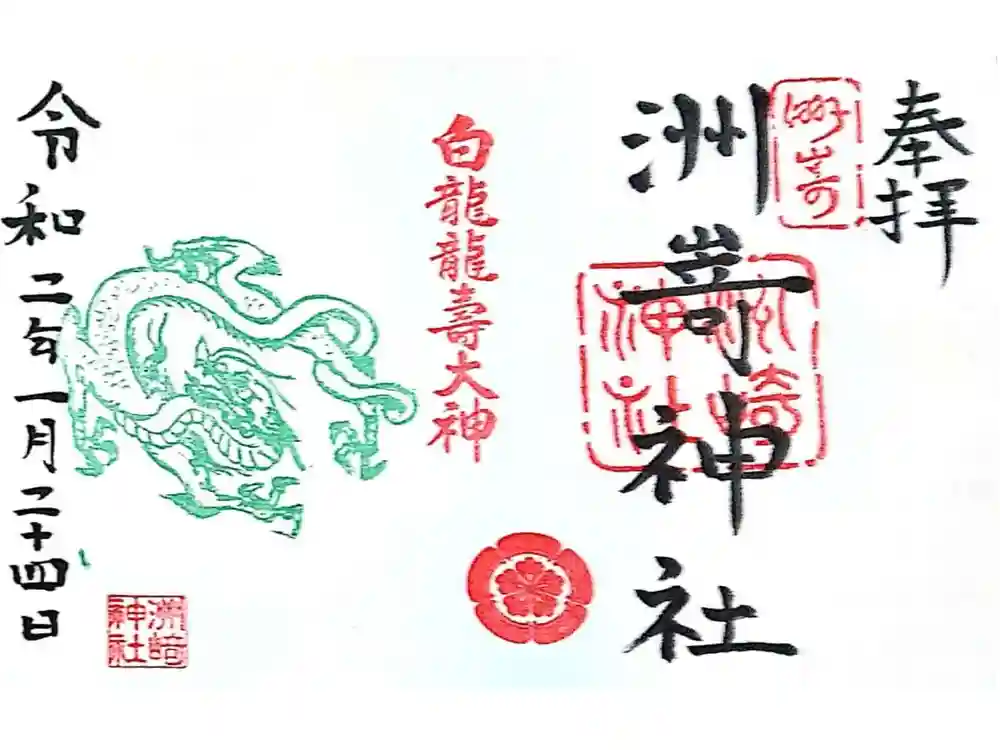 奉拝
洲嵜
洲嵜神社
洲崎
神社
白龍龍壽大神
令和二年一月二十四日
洲崎
神社